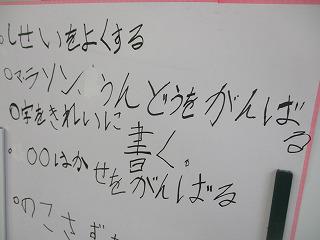 ○しせいをよくする
○マラソン、うんどうをがんばる
○字をきれいに書く。
○○○はかせをがんばる
○のこさず